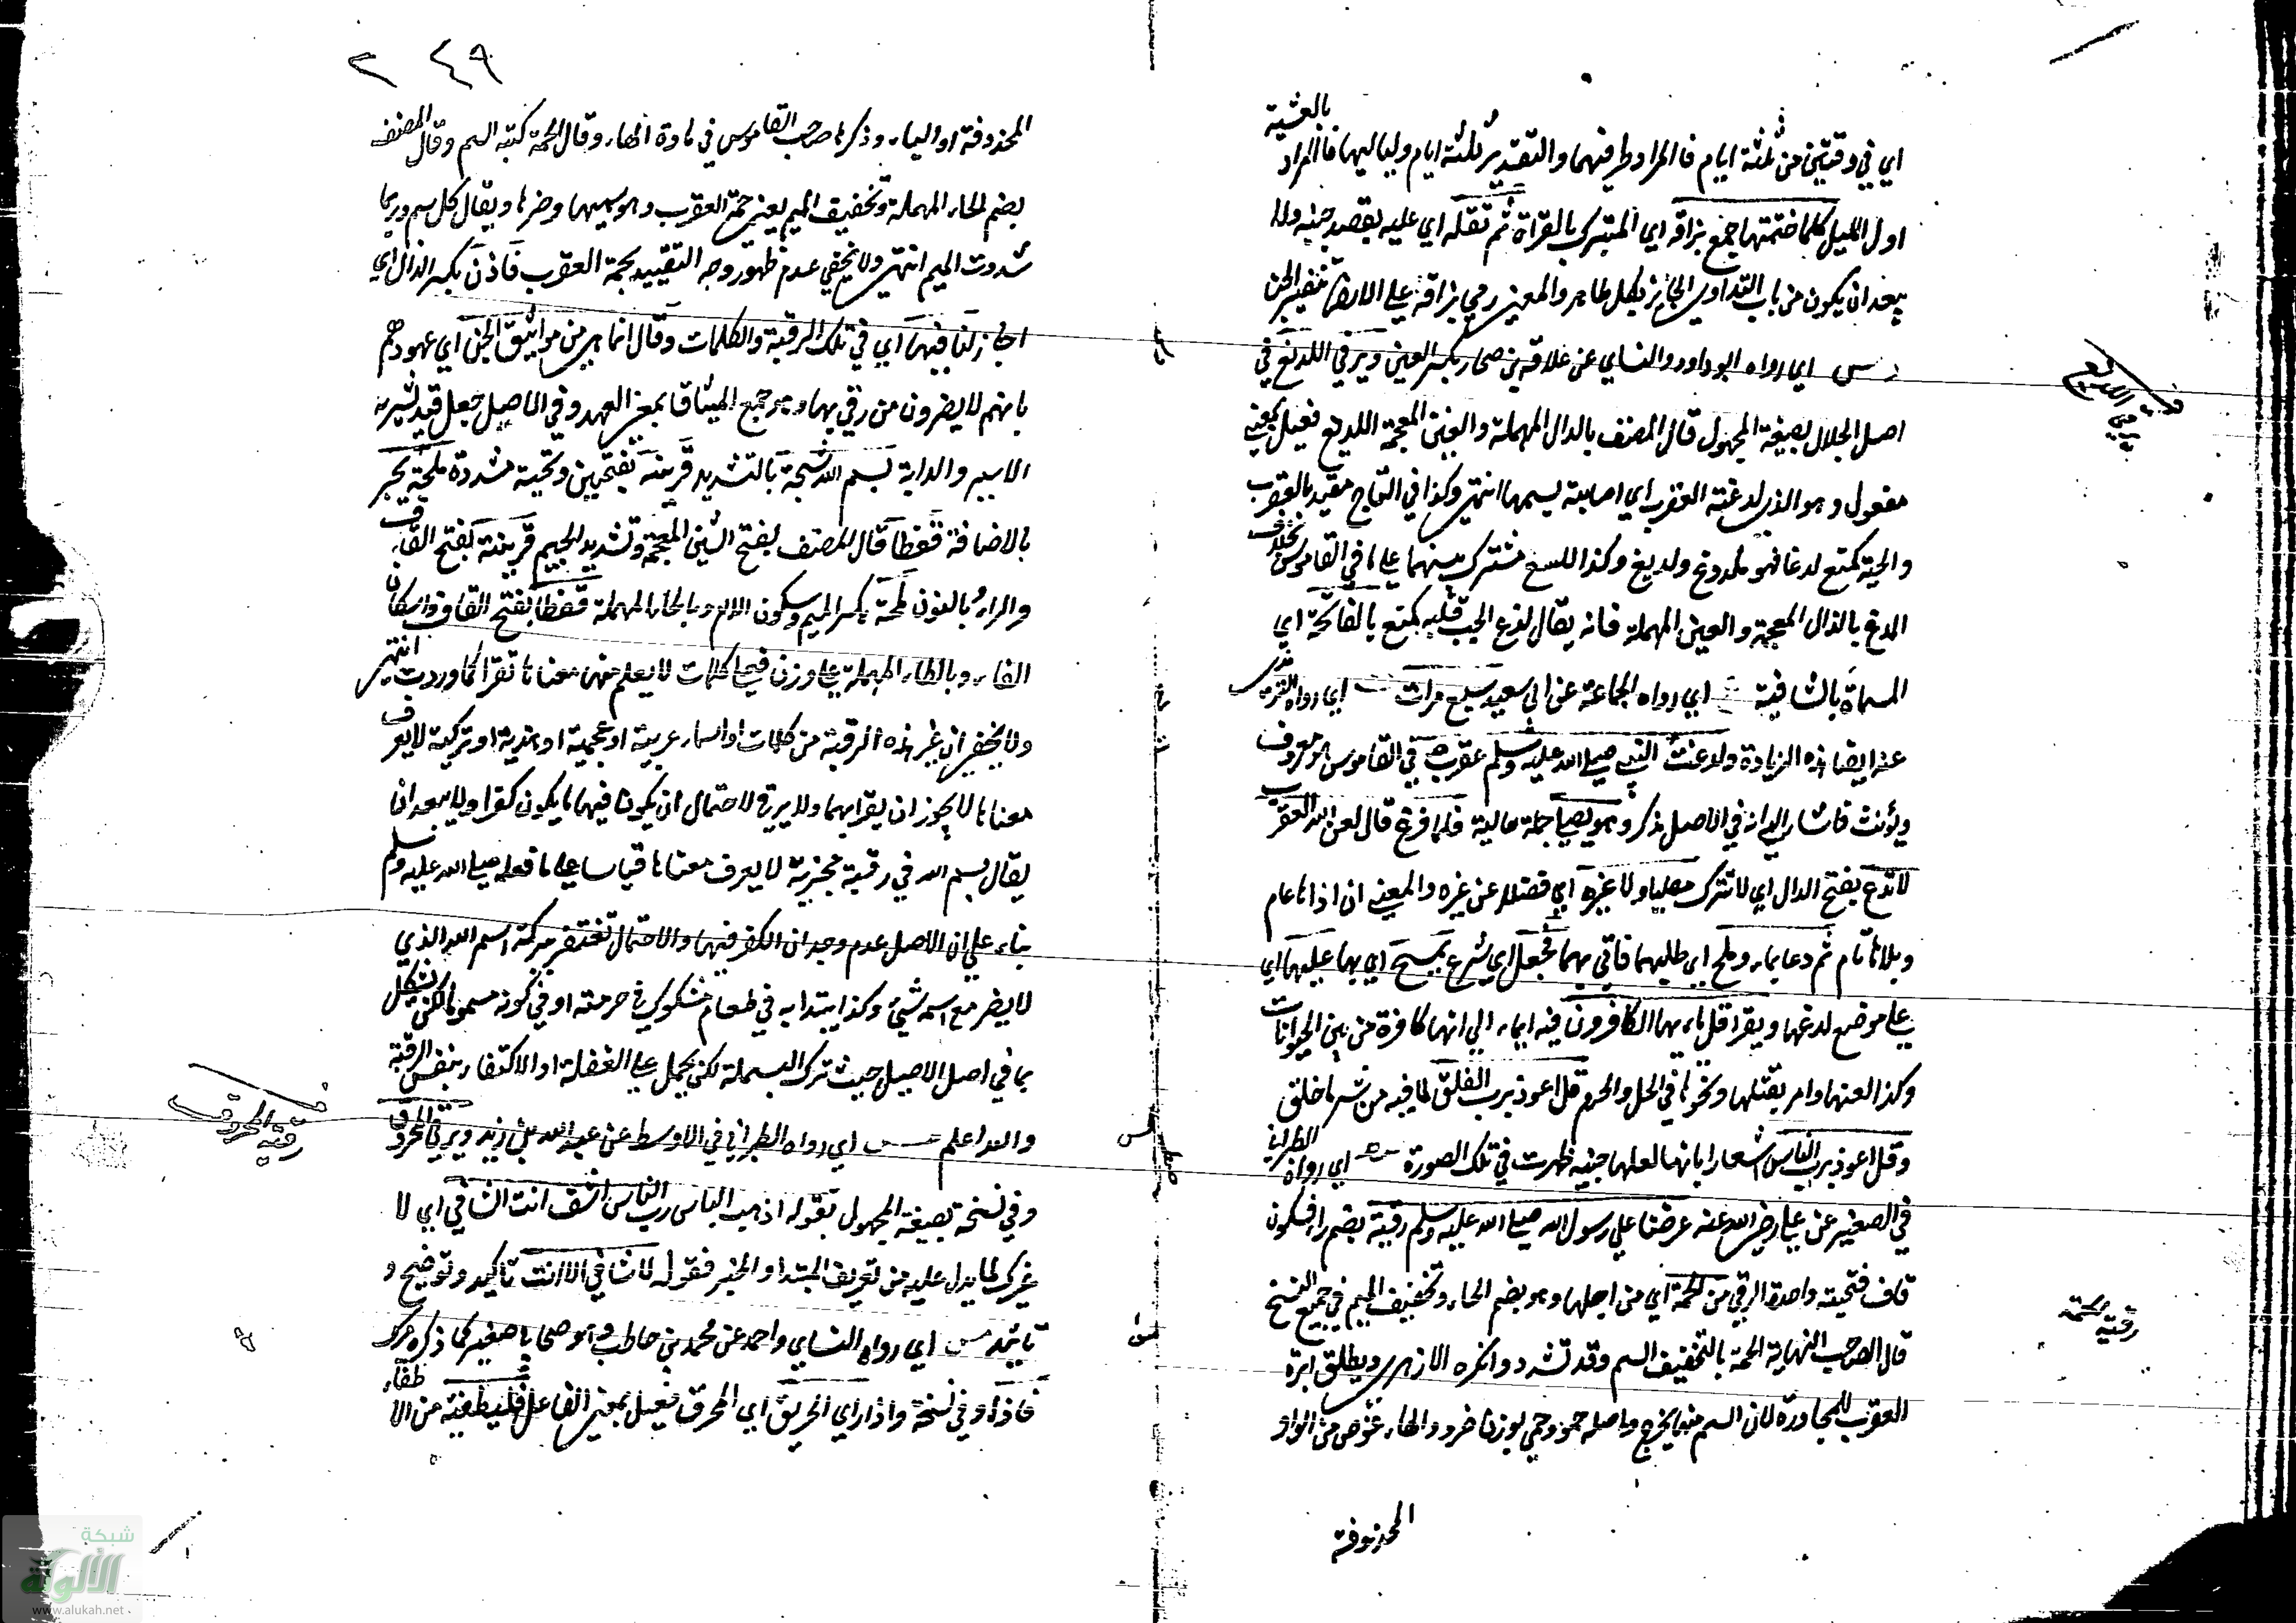 اي في وقتين من ثلثة ايام فالمراد طرفيهما والتقدير ثلثة ايام ولياليها فالمراد بالعشية
اول الليل كلما ختمتها جمع بزاقه اي المتبرك بالقراة ثم تفله اي عليه بقصد جنيه ولا
يبعد ان يكون من باب التداوي الجائز بكل طاهر والمعني رمي بزاقه علي الارض لتنفير الجن
د س اي رواه ابو داود والنساي عن علاقة بن صحار بكسر العين ويرقي اللديغ في
اصل الجلال بصيغة المجهول قال المصنف بالدال المهملة والغين المعجمة اللديغ فعيل بمعني
مفعول وهو الذي لدغته العقرب اي اصابته بسمها انتهي وكذا في التاج مقيد بالعقرب
والحية كمنع لدغا فهو ملدوغ ولديغ وكذا اللسع مشترك بينهما علي ما في القاموس بخلاف
اللذع بالذال المعجمة والعين المهملة فانه يقال لذع الحب قلبه كمنع بالفاتحة اي
المسماة بالشافية ع اي رواه الجماعة عن ابي سعيد سبع مرات ت اي رواه الترمذي
عنه ايضا بهذه الزيادة ولدغت النبي صلي الله عليه وسلم عقرب في القاموس هو معروف
ويؤنث فاشار الي انه في الاصل مذكر وهو يصلي جملة حالية فلما فرغ قال لعن الله العقرب
لا تدع بفتح الدال اي لا تترك مصليا ولا غيره اي فضلا عن غيره والمعني ان اذاها عام
وبلاها تام ثم دعا بماء وملح اي طلبهما فاتي بهما فجعل اي شرع يمسح اي بها عليها اي
علي موضع لدغها ويقرا قل يا ايها الكافرون فيه ايماء الي انها كافرة من بين الحيوانات
وكذا لعنها وامر بقتلها ونحوها في الحل والحرم قل اعوذ برب الفلق لما فيه من شر ما خلق
وقل اعوذ برب الناس اشعارا بانها لعلها جنيه ظهرت في تلك الصورة صط اي رواه الطبراني
في الصغير عن علي رضي الله عنه عرضنا علي رسول الله صلي الله عليه وسلم رقية بضم را فسكون
قاف فتحتية واحدة الرقي من الحمة اي من اجلها وهو بضم الحاء وتخفيف الميم في جميع النسخ
قال صاحب النهاية الحمة بالتخفيف السم وقد تشدد وانكره الازهري ويطلق ابرة
العقرب للمجاورة لان السم منها يخرج واصله حمو وحمي بوزن صرد والهاء عوض من الواو
المحذوفة
رقية اللديغ
رقية الحمة
٢٤٩
المحذوفة او الياء وذكرها صاحب القاموس في مادة الهاء وقال الحمة كثبة السم وقال المصنف
بضم الحاء المهملة وتخفيف الميم يعني حمة العقرب وهو سمها وضرها ويقال لكل سم وربما
شددت الميم انتهي ولا يخفي عدم ظهور وجه التقييد بحمة العقرب فاذن بكسر الذال اي
اجاز لنا فيها اي في تلك الرقية والكلمات وقال انما هي من مواثيق الجن اي عهودهم
بانهم لا يضرون من رقي بها وهو جمع الميثاق بمعني العهد وفي الاصل حبل قيد يشد به
الاسير والدابة بسم الله شجة بالتشديد قرنية بفتحتين وتحتية مشددة ملحة بحر
بالاضافة قفطا قال المصنف بفتح الشين المعجمة وتشديد الجيم قرنية بفتح القاف
والراء وبالنون ملحة بكسر الميم وسكون اللام وبالحاء المهملة قفطا بفتح القاف واسكان
الفاء وبالطاء المهملة علي وزن فعلي كلمات لا يعلم معناها تقرا كما وردت انتهي
ولا يخفي ان غير هذه الرقية من كلمات او اسماء عربية او عجمية او هندية او تركية لا يعرف
معناها لا يجوز ان يقرا بها ولا يرقي لاحتمال ان يكون فيها ما يكون كفرا ولا يبعد ان
يقال بسم الله في رقية مجربة لا يعرف معناها قياسا علي ما فعله صلي الله عليه وسلم
بناء علي ان الاصل عدم وجدان الكفر فيها والاحتمال تغتفر ببركة اسم الله الذي
لا يضر مع اسمه شيئ وكذا يبتدا به في طعام مشكوك في حرمته او في كونه مسموما لكن يشكل
بما في اصل الاصيل حيث ترك البسملة لكن يحمل علي الغفلة او الاكتفاء بنفس الرقية
والله اعلم طس اي رواه الطبراني في الاوسط عن عبد الله بن زيد ويرقي المحروق
وفي نسخة بصيغة المجهول بقوله اذهب الباس رب الناس اشف انت الشافي اي لا
غيرك لما يدل عليه من تعريف المبتدا والخبر فقوله لا شافي الا انت تاكيد وتوضيح و
تاييد س ا اي رواه النساي واحمد عن محمد بن حاطب وهو صحابي صغير كما ذكره ميرك
فاذا وفي نسخة واذا راي الحريق اي المحرق فعيل بمعني الفاعل فليطفئه من الاطفاء
رقية المحروق